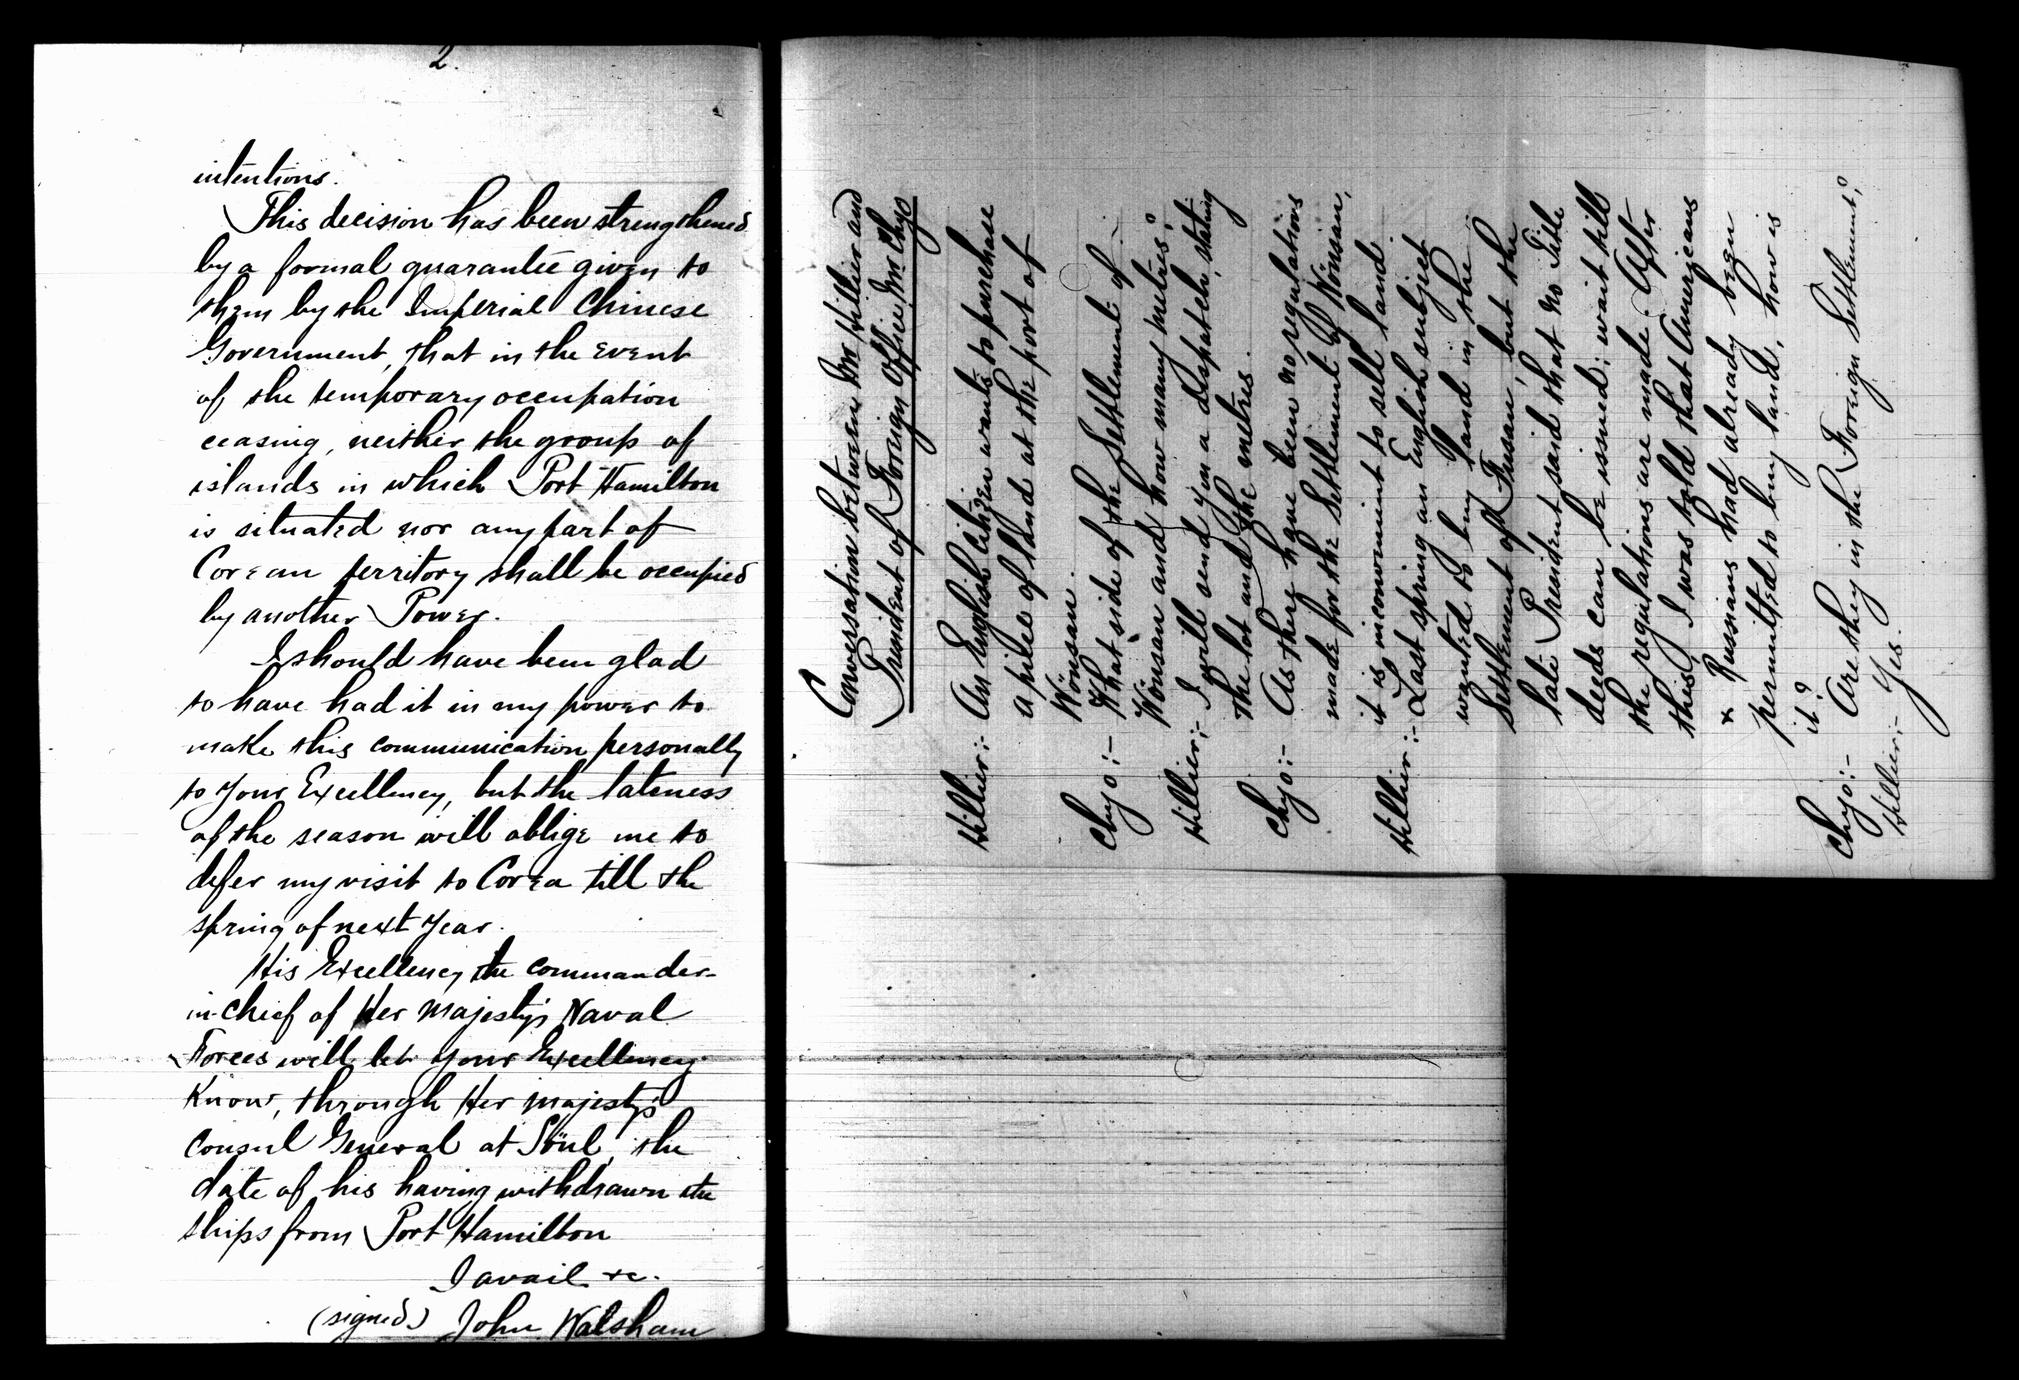 2.
intentions.
This decision has been strengthened
by a formal guarantee given to
them by the Imperial Chinese
Government, that in the event
of the temporary occupation
ceasing, neither the group of
islands in which Port Hamilton
is situated nor any part of
Corean territory shall be occupied
by another Power.
I should have been glad
to have had it in my power to
make this communication personally
to your Excellency, but the lateness
of the season will oblige me to
defer my visit to Corea till the
spring of next year.
His Excellency the Commander-
in-Chief of Her Majesty's Naval
Forces will let your Excellency
know, through Her Majesty's
Consul General at Söul, the
date of his having withdrawn the
ships from Port Hamilton
I avail &c.
(signed) John Walsham
Conversation between Mr Hillier and
President of Foreign Office, Mr Chyo
Hillier:- An English Citizen wants to purchase
a piece of land at the port of
Wönsan.
Chyo:- What side of the Settlement of
Wönsan and how many metres?
Hillier:- I will send you a despatch, stating
the lot and the metres.
Chyo:- As there have been no regulations
made for the Settlement of Wönsan,
it is inconvenient to sell land.
Hillier:- Last spring an English subject
wanted to buy land in the
Settlement of Fusan, but the
late President said that no Title
deeds can be issued; wait till
the regulations are made. After
this, I was told that Americans
& Russians had already been
permitted to buy land, how is
it?
Chyo:- Are they in the Foreign Settlement?
Hillier:- Yes.